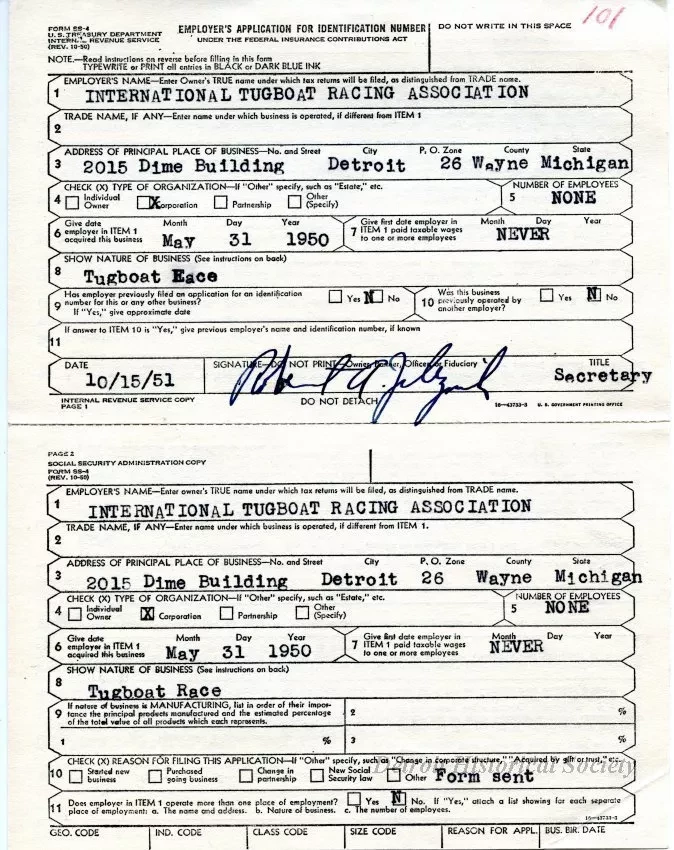 FORM SS-4
U. S. TREASURY DEPARTMENT
INTERNAL REVENUE SERVICE
(REV. 10-50)
EMPLOYER'S APPLICATION FOR IDENTIFICATION NUMBER
UNDER THE FEDERAL INSURANCE CONTRIBUTIONS ACT
DO NOT WRITE IN THIS SPACE
101
NOTE.—Read instructions on reverse before filling in this form
TYPEWRITE or PRINT all entries in BLACK or DARK BLUE INK
EMPLOYER'S NAME—Enter Owner's TRUE name under which tax returns will be filed, as distinguished from TRADE name.
1 INTERNATIONAL TUGBOAT RACING ASSOCIATION
TRADE NAME, IF ANY—Enter name under which business is operated, if different from ITEM 1
2
ADDRESS OF PRINCIPAL PLACE OF BUSINESS—No. and Street City P. O. Zone County State
3 2015 Dime Building Detroit 26 Wayne Michigan
CHECK (X) TYPE OF ORGANIZATION—If "Other" specify, such as "Estate," etc.
4 Individual Owner X Corporation Partnership Other (Specify)
NUMBER OF EMPLOYEES
5 NONE
6 Give date employer in ITEM 1 acquired this business Month Day Year
May 31 1950
7 Give first date employer in ITEM 1 paid taxable wages to one or more employees Month Day Year
NEVER
SHOW NATURE OF BUSINESS (See instructions on back)
8 Tugboat Race
9 Has employer previously filed an application for an identification number for this or any other business? Yes X No
If "Yes," give approximate date
10 Was this business previously operated by another employer? Yes X No
If answer to ITEM 10 is "Yes," give previous employer's name and identification number, if known
11
DATE
10/15/51
SIGNATURE—DO NOT PRINT—Owner, Partner, Officer, or Fiduciary
TITLE
Secretary
INTERNAL REVENUE SERVICE COPY
PAGE 1
DO NOT DETACH
16—43733-3 U. S. GOVERNMENT PRINTING OFFICE
PAGE 2
SOCIAL SECURITY ADMINISTRATION COPY
FORM SS-4
(REV. 10-50)
EMPLOYER'S NAME—Enter owner's TRUE name under which tax returns will be filed, as distinguished from TRADE name.
1 INTERNATIONAL TUGBOAT RACING ASSOCIATION
TRADE NAME, IF ANY—Enter name under which business is operated, if different from ITEM 1.
2
ADDRESS OF PRINCIPAL PLACE OF BUSINESS—No. and Street City P. O. Zone County State
3 2015 Dime Building Detroit 26 Wayne Michigan
CHECK (X) TYPE OF ORGANIZATION—If "Other" specify, such as "Estate," etc.
4 Individual Owner X Corporation Partnership Other (Specify)
NUMBER OF EMPLOYEES
5 NONE
6 Give date employer in ITEM 1 acquired this business Month Day Year
May 31 1950
7 Give first date employer in ITEM 1 paid taxable wages to one or more employees Month Day Year
NEVER
SHOW NATURE OF BUSINESS (See instructions on back)
8 Tugboat Race
9 If nature of business is MANUFACTURING, list in order of their importance the principal products manufactured and the estimated percentage of the total value of all products which each represents.
2 %
1 % 3 %
CHECK (X) REASON FOR FILING THIS APPLICATION—If "Other" specify, such as "Change in corporate structure," "Acquired by gift or trust," etc.
10 Started new business Purchased going business Change in partnership New Social Security law Other Form sent
Detroit Historical Society
11 Does employer in ITEM 1 operate more than one place of employment? Yes X No. If "Yes," attach a list showing for each separate
place of employment: a. The name and address. b. Nature of business. c. The number of employees.
16—43733-3
GEO. CODE IND. CODE CLASS CODE SIZE CODE REASON FOR APPL. BUS. BIR. DATE